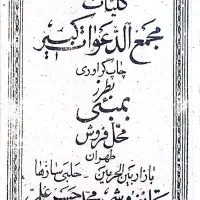 کلیات
مجمع الدعوات کبیر
چاپ گراوری
بطرز
بمبئی
محل فروش
طهران
بازار بین الحرمین - حلبی سازها
محمد حسن علمی